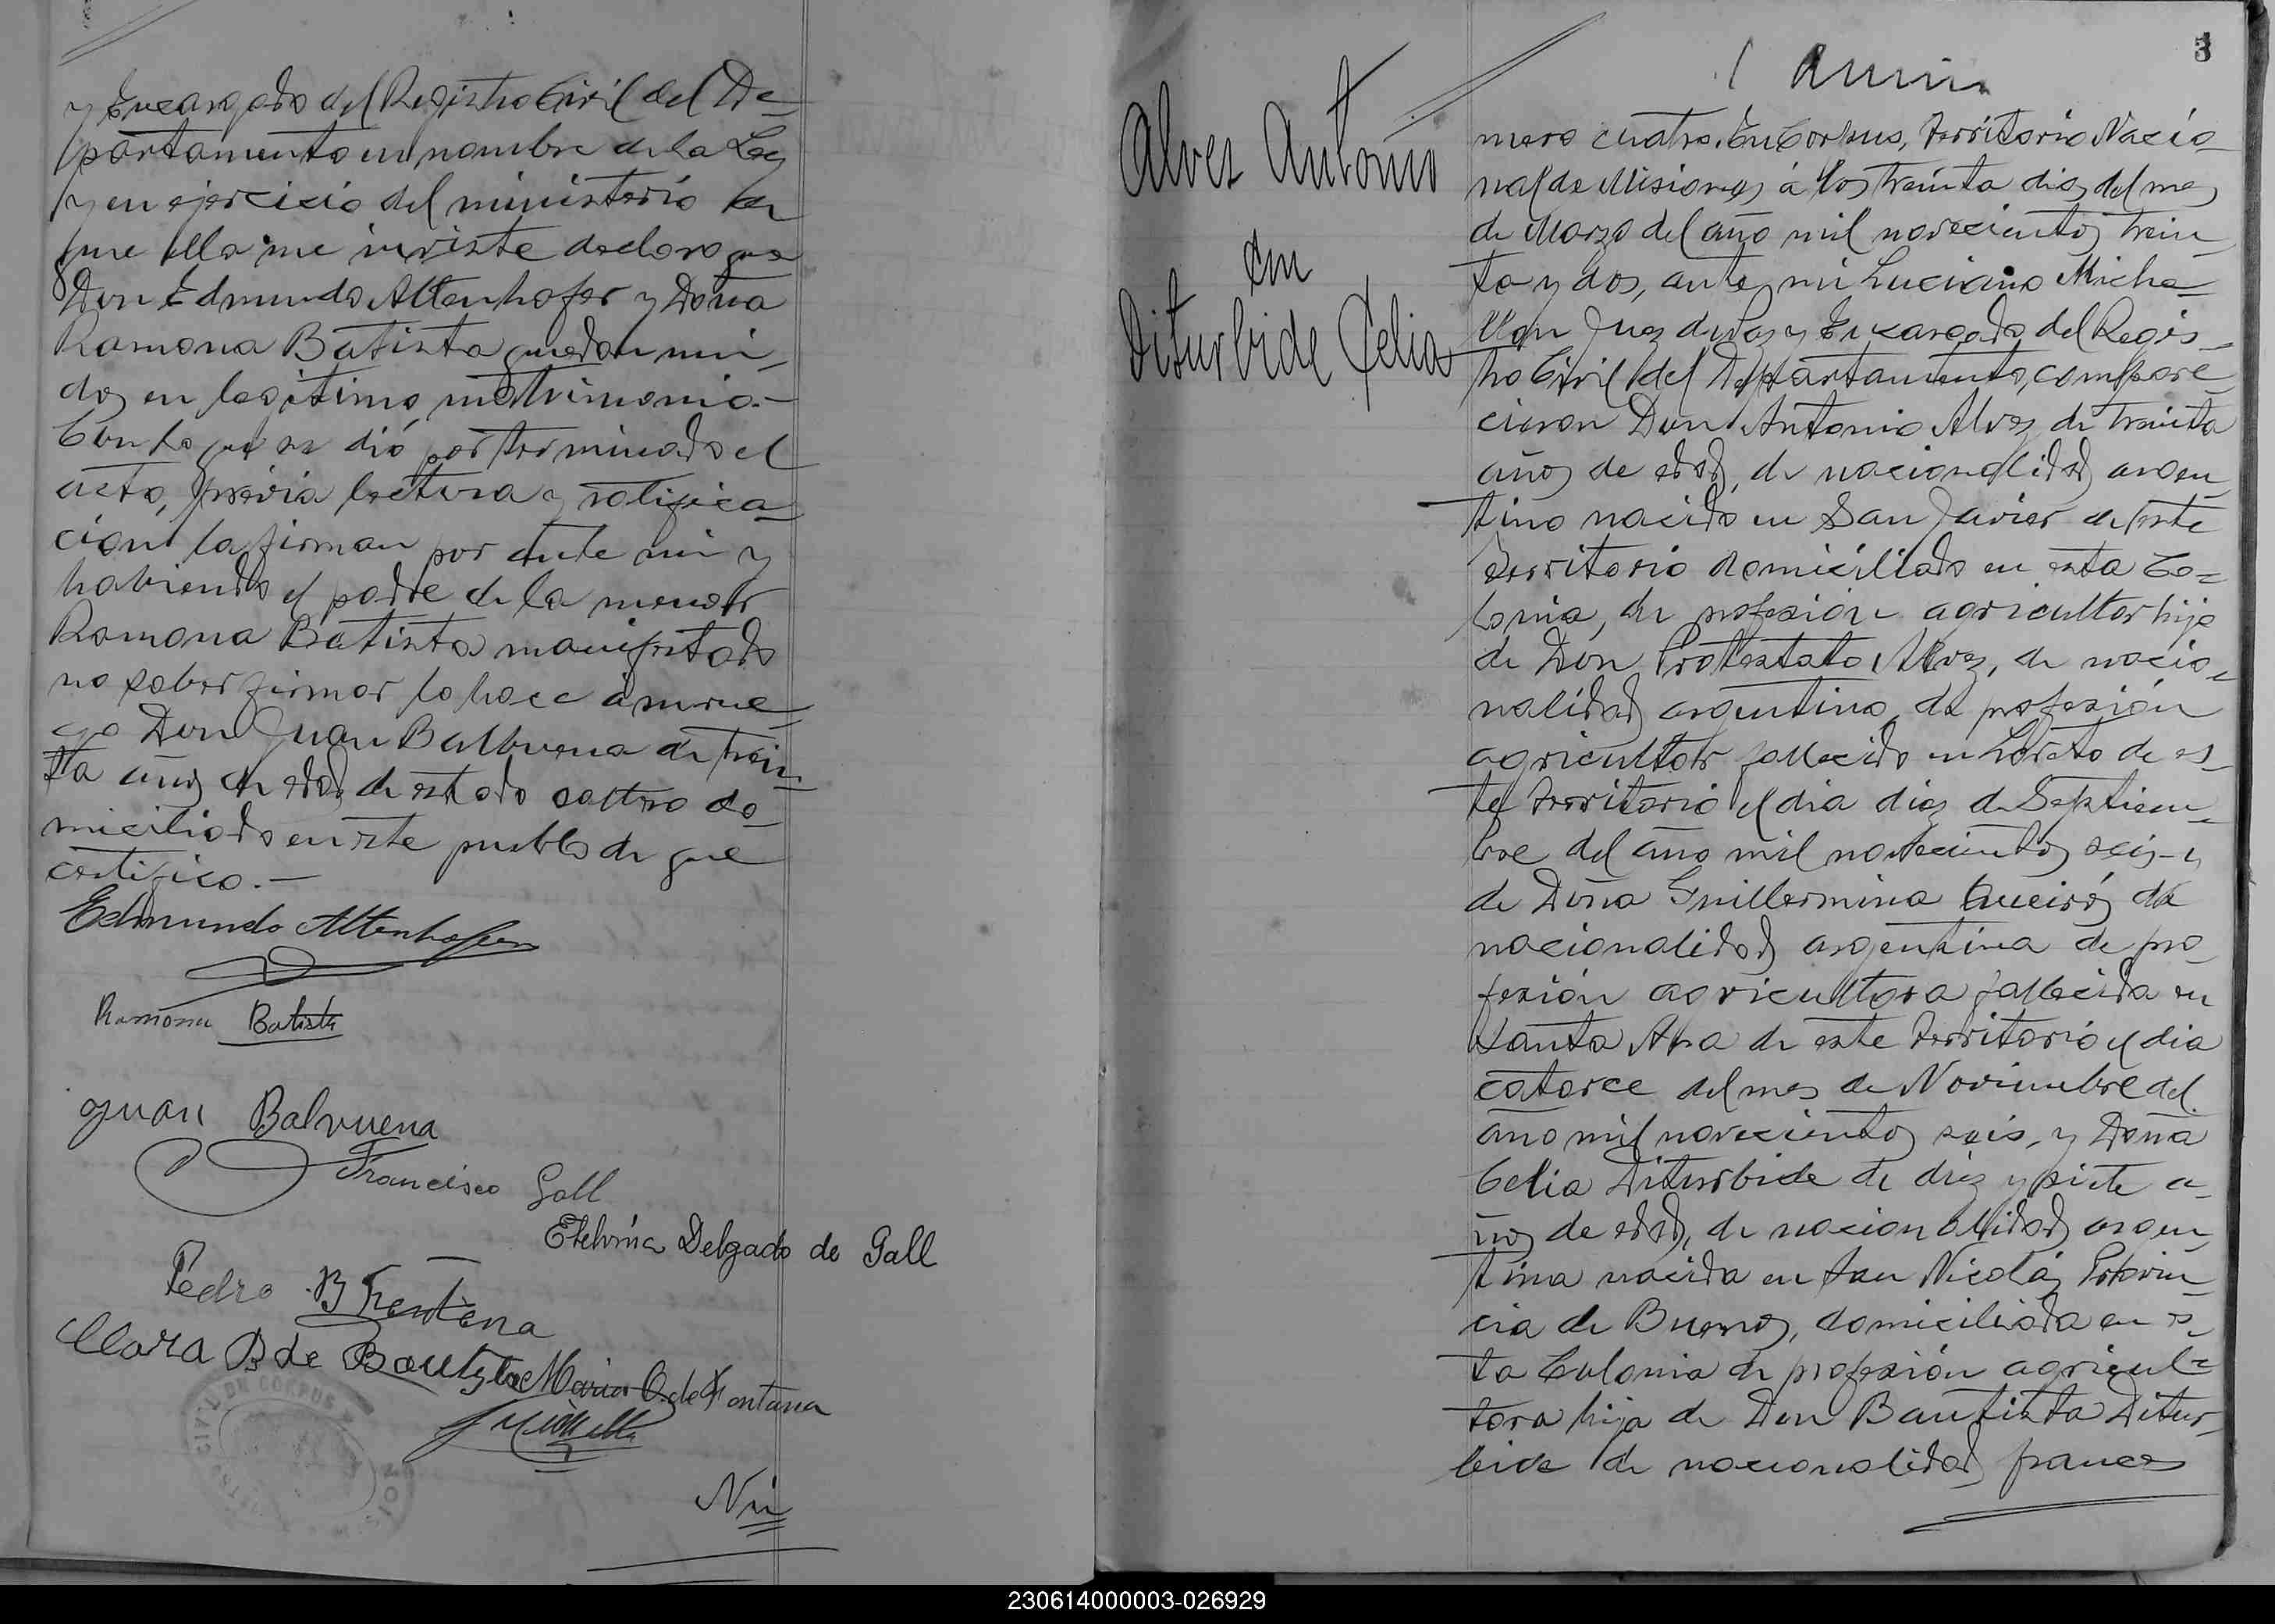 y Encargado del Registro Civil del De-
partamento en nombre de la Ley
y en ejercicio del ministerio
que ella me inviste declaro que
Don Edmundo Altenhofer y Doña
Ramona Batista quedan uni-
dos en legitimo matrimonio.-
Con lo que se dió por terminado el
acto, previa lectura y ratifica-
ción la firman por ante mi y
habiendo el padre de la menor
Ramona Batista manifestado
no saber firmar lo hace a su rue-
go Don Juan Balbuena de trein-
ta años de edad de estado soltero do-
miciliado en este pueblo de que
certifico.-
Edmundo Altenhofer
Ramona Batista
Juan Balvuena
Francisco Gall
Etelvina Delgado de Gall
Pedro B
Clara B de Bautista Maria O. de Fontana
Nú
3
Alvez Antonio
con
Diturbide Celia
mero cuatro. En Corpus, Territorio Nacio-
nal de Misiones á los treinta dias del mes
de Marzo del año mil novecientos trein-
ta y dos, ante mi Luciano Miche-
Juez de Paz y Encargado del Regis-
tro Civil del Departamento, compare-
cieron Don Antonio Alvez de treinta
años de edad, de nacionalidad argen-
tino nacido en San Javier de este
Territorio domiciliado en esta Co-
lonia, de profesión agricultor hijo
de Don Protestato Alvez, de nacio-
nalidad argentino, de profesión
agricultor fallecido en Loreto de es-
te Territorio el dia diez de Septiem-
bre del año mil novecientos seis y
de Doña Guillermina Queiróz de
nacionalidad argentina de pro-
fesión agricultora fallecida en
Santa Ana de este Territorio el dia
catorce del mes de Noviembre del
año mil novecientos seis, y Doña
Celia Diturbide de diez y siete a-
ños de edad, de nacionalidad argen-
tina nacida en San Nicolás Provin-
cia de Buenos, domiciliada en es-
ta Colonia de profesión agricul-
tora hija de Don Bautista Ditur-
bide de nacionalidad frances
230614000003-026929